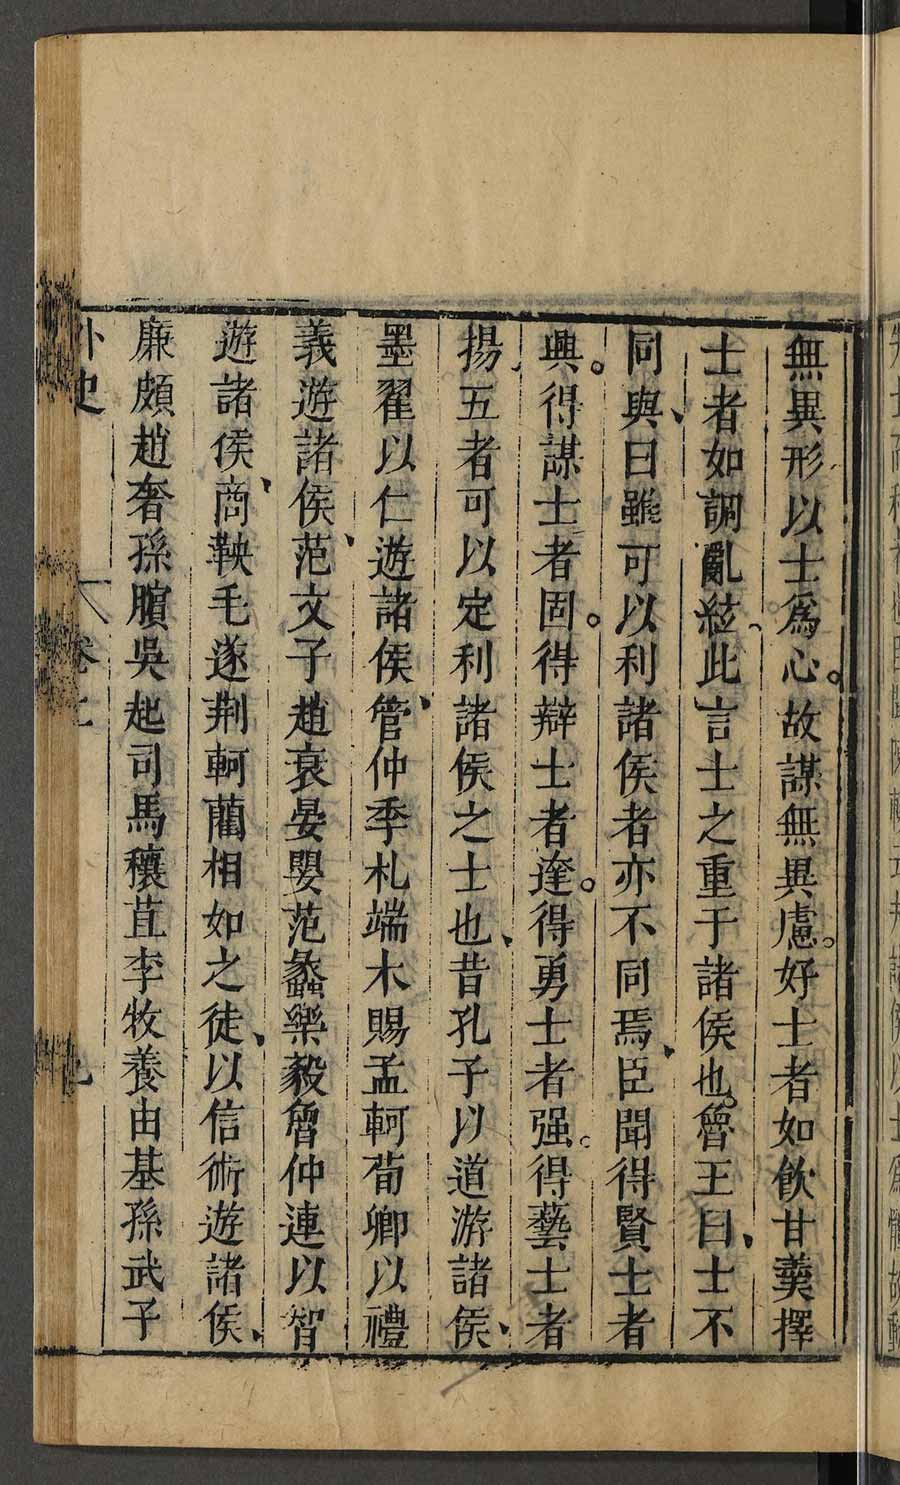 無異形以士爲心。故謀無異慮。好士者如飲甘羹擇
士者如調亂絃、此言士之重于諸侯也。魯王曰、士不
同與、曰雖可以利諸侯者亦不同焉、臣聞得賢士者
興。得謀士者固。得辯士者達。得勇士者强。得藝士者
揚、五者可以定利諸侯之士也、昔孔子以道游諸侯、
墨翟以仁遊諸侯、管仲季札端木賜孟軻荀卿以禮
義遊諸侯、范文子趙衰晏嬰范蠡樂毅魯仲連以智
遊諸侯、商鞅毛遂荆軻藺相如之徒、以信術遊諸侯、
廉頗趙奢孫臏吳起司馬穰苴李牧養由基孫武子
外史
卷之